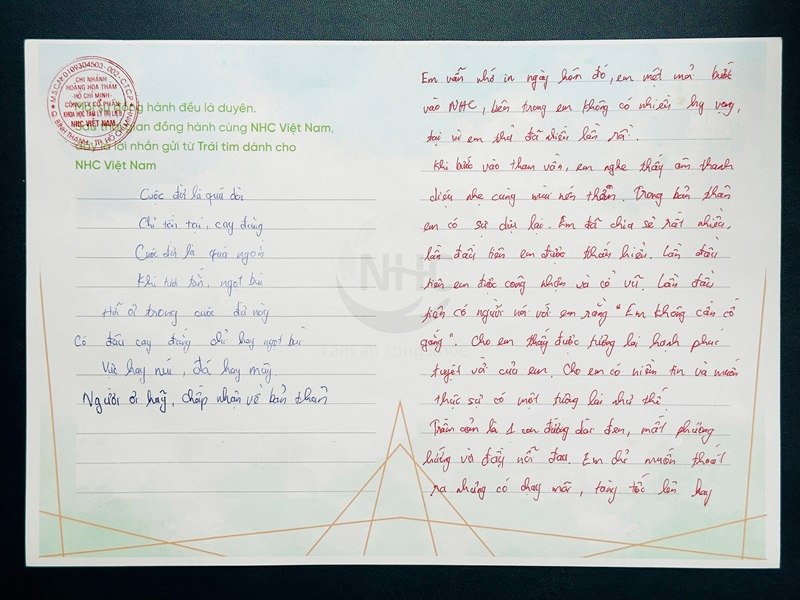 M.S.C.N: 0109304503-002-C.T.C.P
CHI NHÁNH
HOÀNG HOA THÁM
HỒ CHÍ MINH
CÔNG TY CỔ PHẦN
KHOA HỌC TÂM LÝ TRỊ LIỆU
NHC VIỆT NAM
Q. BÌNH THẠNH - TP. HỒ CHÍ MINH
đồng hành đều là duyên.
gian đồng hành cùng NHC Việt Nam,
đây là lời nhắn gửi từ Trái tim dành cho
NHC Việt Nam
Cuộc đời là quá dài
Chỉ tồn tại, cay đắng
Cuộc đời là quá ngắn
Khi tươi tắn, ngọt bùi
Hỡi ơi trong cuộc đời này
Có đâu cay đắng chỉ hay ngọt bùi
Vực hay núi, đá hay mây
Người ơi hãy, chấp nhận về bản thân
NHC
Tâm an sống khỏe
Em vẫn nhớ in ngày hôm đó, em mệt mỏi bước
vào NHC, bên trong em không có nhiều hy vọng,
tại vì em thử đã nhiều lần rồi.
Khi bước vào tham vấn, em nghe thấy âm thanh
dịu nhẹ cùng mùi nến thơm. Trong bản thân
em có sự dịu lại. Em đã chia sẻ rất nhiều,
lần đầu tiên em được thấu hiểu. Lần đầu
tiên em được công nhận và cổ vũ. Lần đầu
tiên có người nói với em rằng "Em không cần cố
gắng". Cho em thấy được tương lai hạnh phúc
tuyệt vời của em. Cho em có niềm tin và muốn
thực sự có một tương lai như thế
Trầm cảm là 1 con đường dài đen, mất phương
hướng và đầy nỗi đau. Em chỉ muốn thoát
ra nhưng có chạy mãi, tăng tốc lên hay